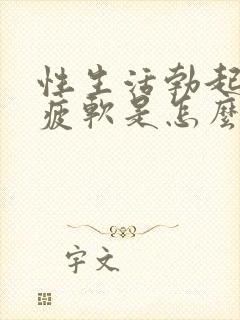 性生活勃起
疲軟是怎麼
字文